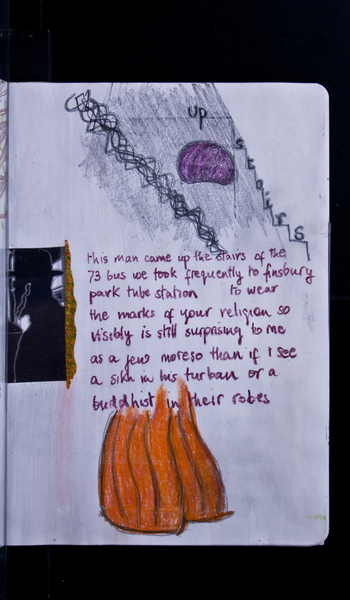 up
stairs
this man came up the stairs of the
73 bus we took frequently to finsbury
park tube station to wear
the marks of your religion so
visibly is still surprising to me
as a jew moreso than if I see
a sikh in his turban or a
buddhist in their robes